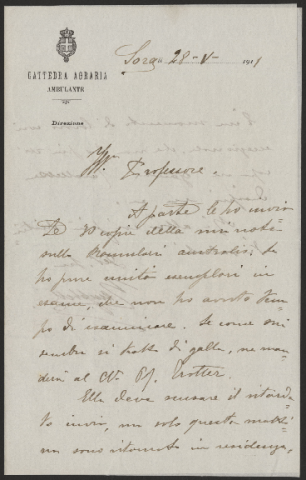 CATTEDRA AGRARIA
AMBULANTE
Direzione
Sora 28-V- 1911
Ill. Professore,
A parte le ho inviato
le 80 copie della mia nota
sulle australi; le
ho pure unito esemplari in
esame, che non ho avuto tem-
po di esaminare. Se come mi
sembra si tratta di galle, ne man-
derà al Cav. Prof. Trotter.
Ella deve scusare il ritarda-
to invio, ma solo questa matti-
na sono ritornato in residenza,